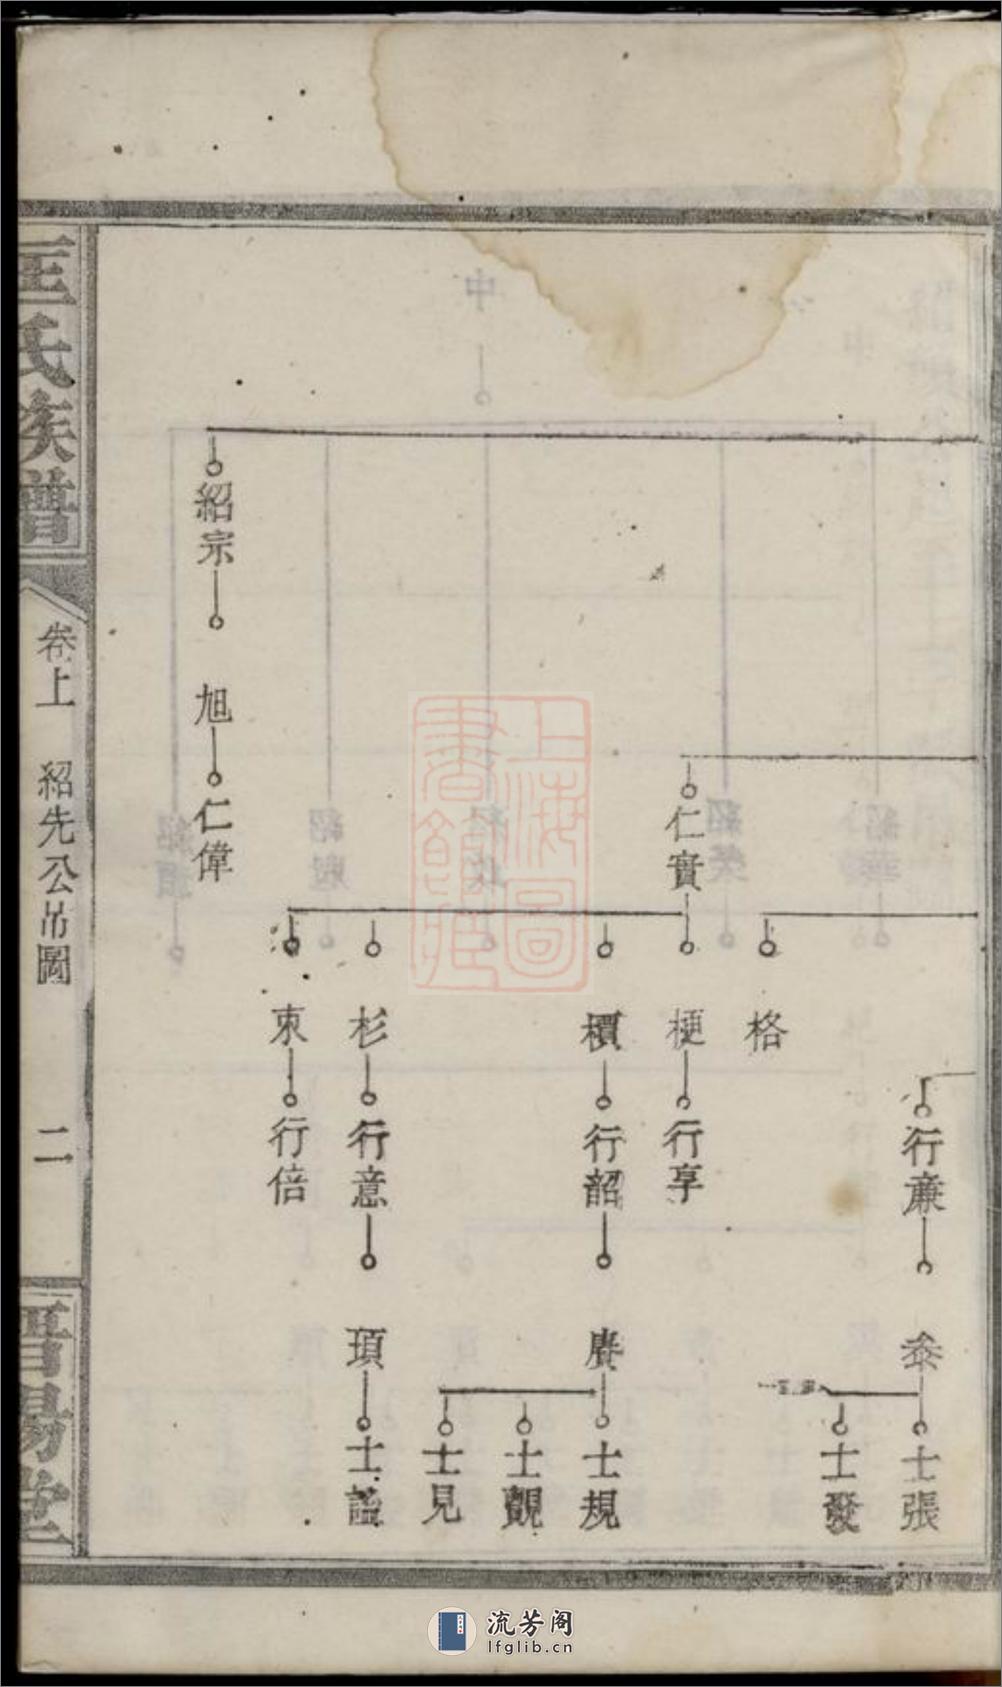 行廉
泰
士張
士發
格
仁實
梗
行享
檟
行韶
賡
士規
士觀
士見
杉
行意
頊
士謐
束
行倍
紹宗
旭
仁偉
匡氏族譜
卷上
紹先公吊圖
二
晋陽堂
上海圖書館藏
流芳阁
lfglib.cn